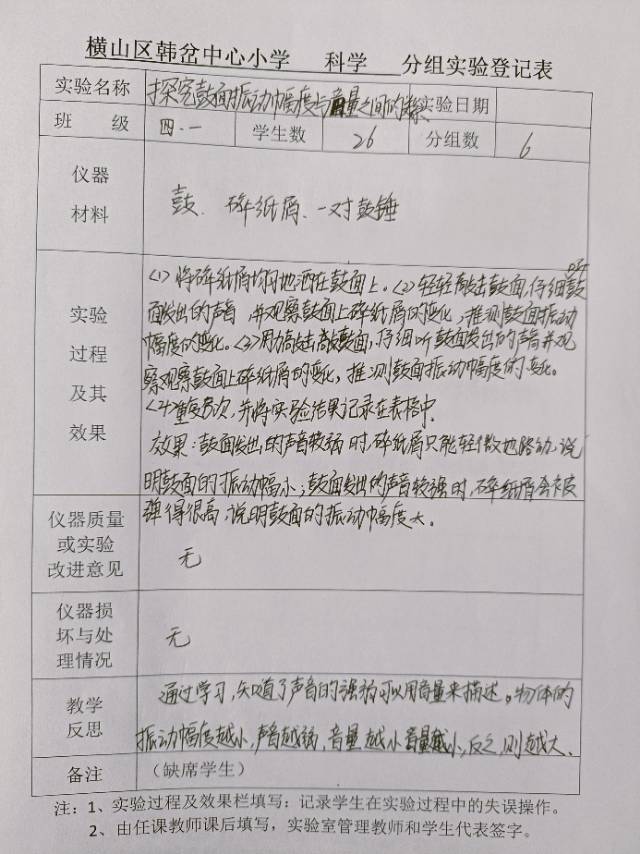 横山区韩岔中心小学 科学 分组实验登记表
实验名称 探究鼓面振动幅度与音量之间的关系 实验日期
班 级 四.一 学生数 26 分组数 6
仪器
材料
鼓、碎纸屑、一对鼓锤
实验
过程
及其
效果
<1>将碎纸屑均匀地洒在鼓面上。<2>轻轻敲击鼓面,仔细听鼓
面发出的声音,并观察鼓面上碎纸屑的变化,推测鼓面振动
幅度的变化。<3>用力敲击鼓面,仔细听鼓面发出的声音并观
察观察鼓面上碎纸屑的变化,推测鼓面振动幅度的变化。
<4>重复多次,并将实验结果记录在表格中.
效果:鼓面发出的声音较弱时,碎纸屑只能轻微地跳动,说
明鼓面的振动幅小;鼓面发出的声音较强时,碎纸屑会被
弹得很高,说明鼓面的振动幅度大.
仪器质量
或实验
改进意见
无
仪器损
坏与处
理情况
无
教学
反思
通过学习,知道了声音的强弱可以用音量来描述。物体的
振动幅度越小,声音越弱,音量越小音量越小,反之,则越大.
备注 (缺席学生)
注:1、实验过程及效果栏填写:记录学生在实验过程中的失误操作。
2、由任课教师课后填写,实验室管理教师和学生代表签字。